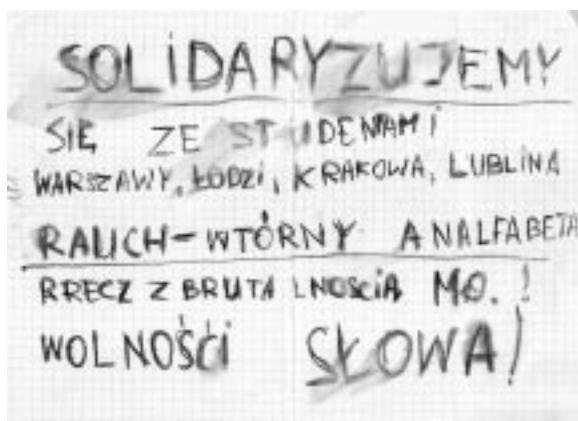 SOLIDARYZUJEMY
SIĘ ZE STUDENAMI
WARSZAWY, ŁODZI, KRAKOWA, LUBLINA
RAUCH-WTÓRNY ANALFABETA
RRECZ Z BRUTALNOSCIĄ MO.!
WOLNOŚCI SŁOWA!